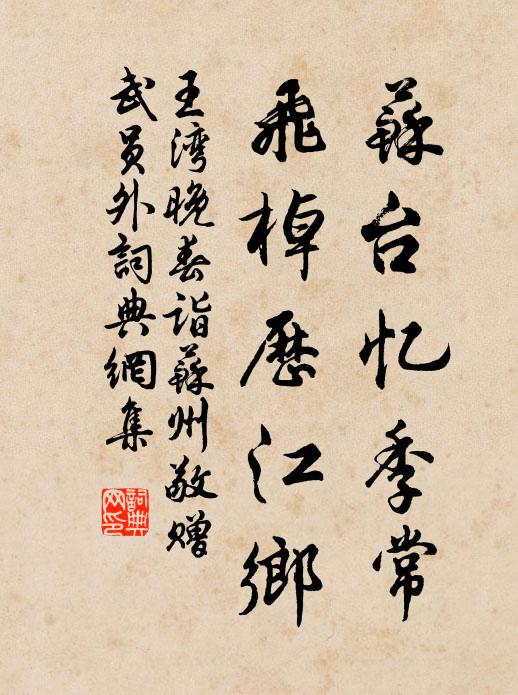 蘇台忆季常
飛棹歷江鄉
王湾晚春詣蘇州敬赠
武员外詞典網集
詞典网印